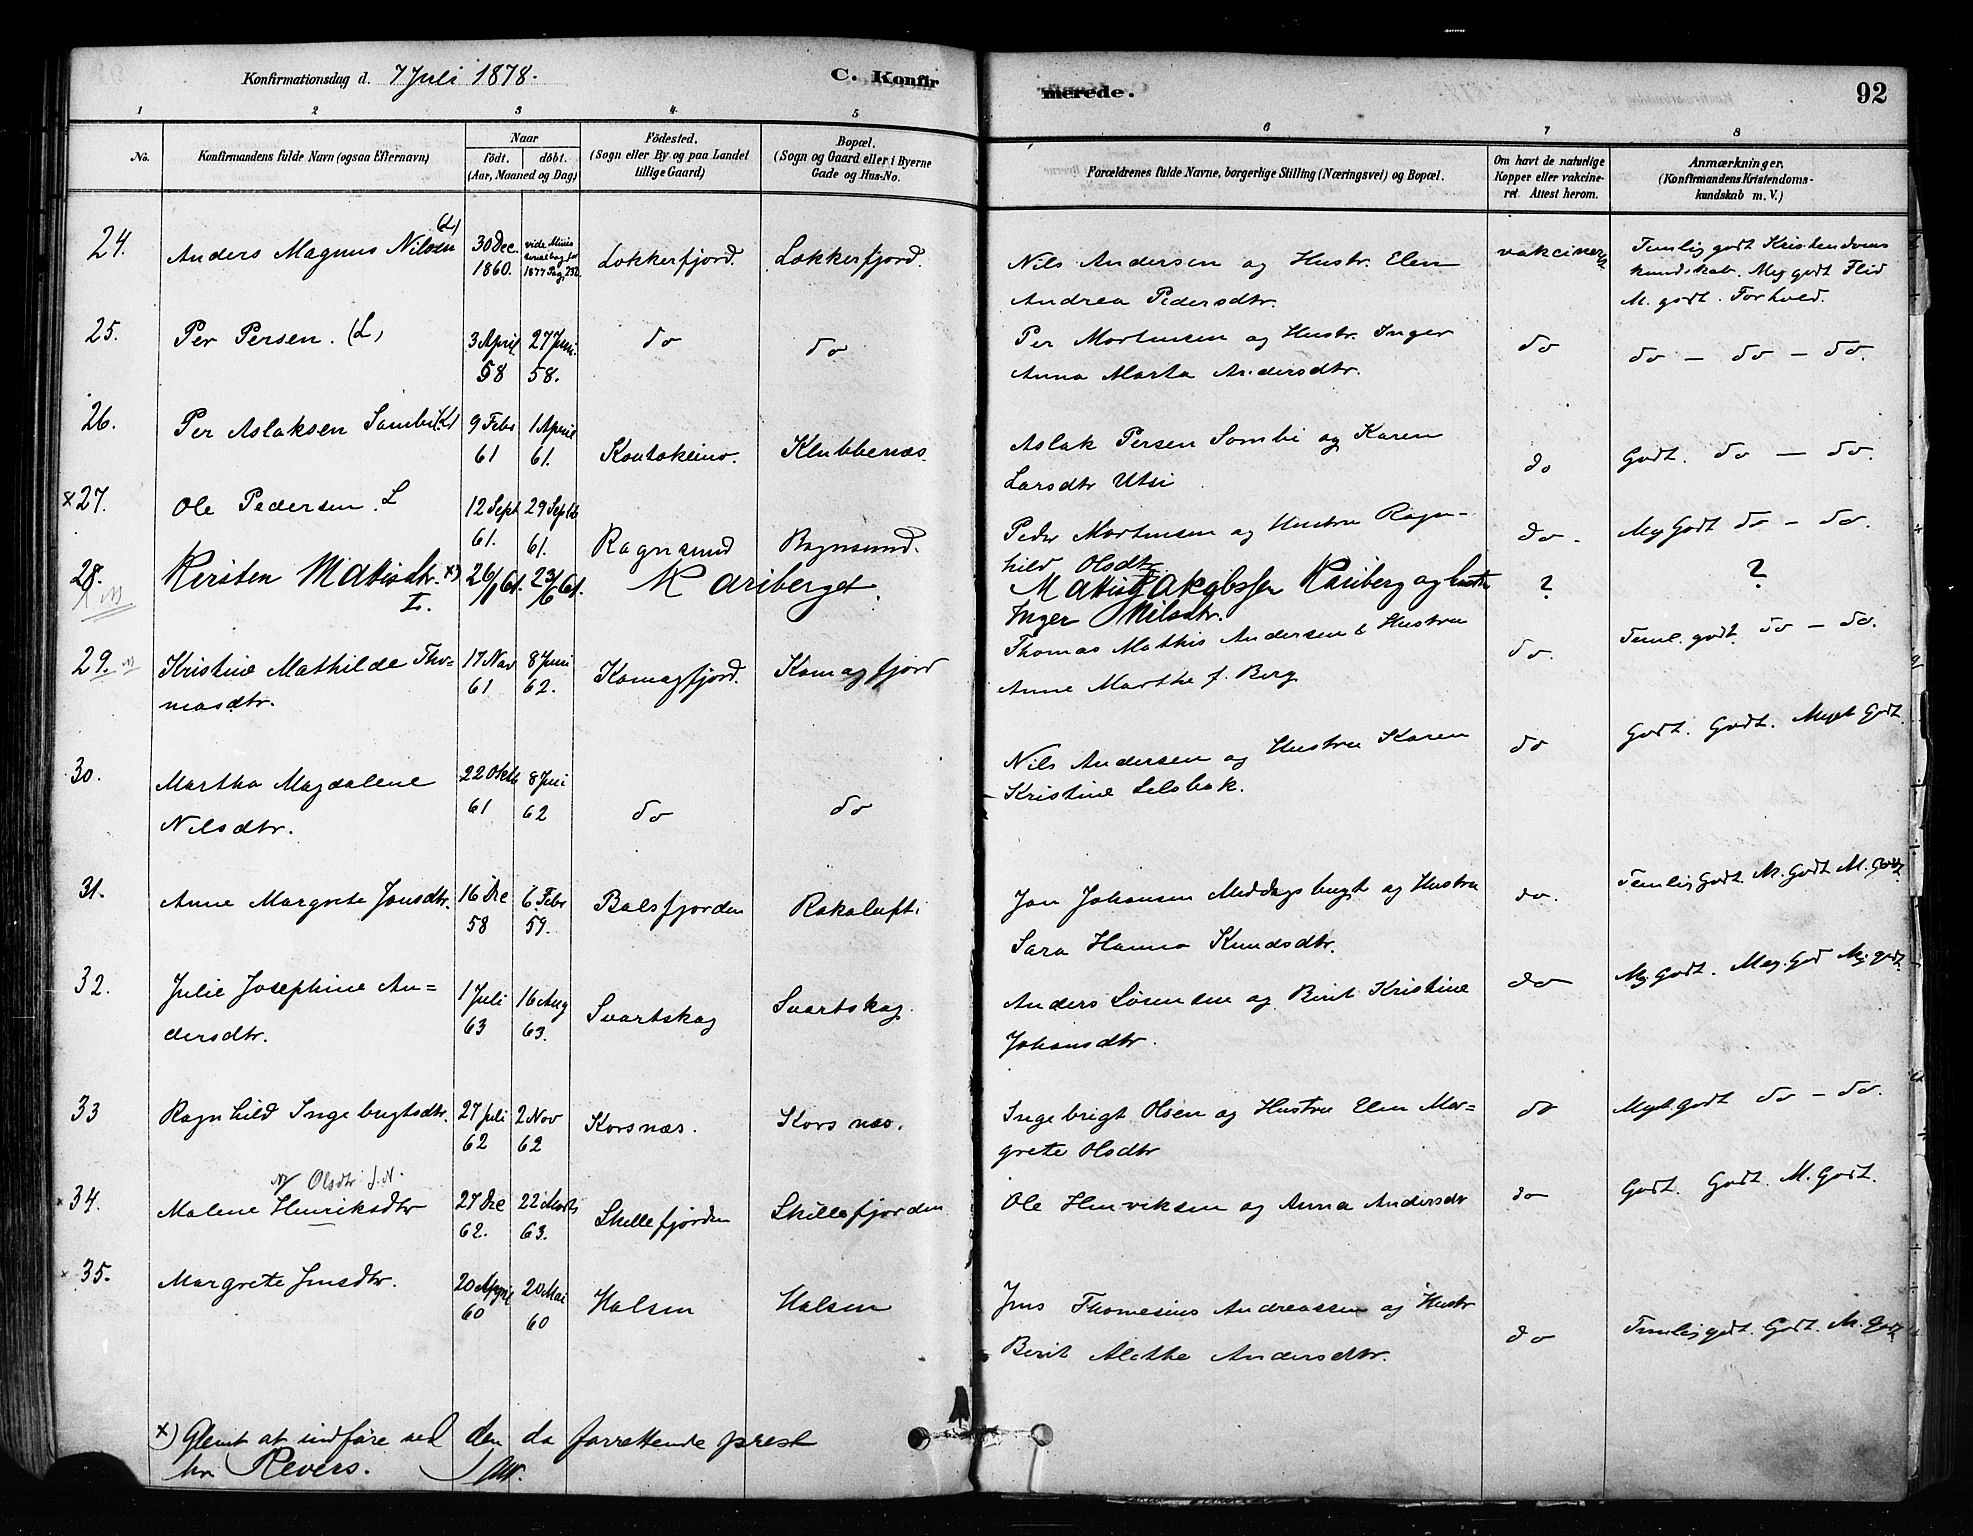 Konfirmationsdag d. 7 Juli 1878.
C. Konfirmerede.
92
1 2 3 4 5 6 7 8
No.
Konfirmandens fulde Navn (ogsaa Efternavn)
Naar
födt. döbt.
(Aar, Maaned og Dag)
Födested.
(Sogn eller By og paa Landet
tillige Gaard)
Bopæl.
(Sogn og Gaard eller i Byerne
Gade og Hus-No.
Forældrenes fulde Navne, borgerlige Stilling (Næringsvei) og Bopæl.
Om havt de naturlige
Kopper eller vakcine-
ret. Attest herom.
Anmærkninger,
(Konfirmandens Kristendoms-
kundskab m. V.)
24. Anders Magnus Nilsen (L) 30 Dec. 1860. vide Ministerialbog for 1877 Pag. 232 Lokkerfjord. Lokkerfjord. Nils Andersen og Hustr. Elen
Andrea Pedersdtr. vakcineret Temlig godt Kristendoms
kundskab. Meg godt Flid
M. godt. Forhold.
25. Per Persen. (L) 3 April 58 27 Juni 58. do do Per Mortensen og Hustr. Inger
Anna Marta Andersdtr. do do — do — do.
26. Per Aslaksen Sombi (K) 9 Febr 61 1 April 61. Koutokeino. Klubbenæs. Aslak Persen Sombi og Karen
Larsdtr Utsi do Godt. do — do.
x 27. Ole Pedersen. L 12 Sept 61. 29 Septb 61. Rognsund Rognsund. Peder Mortensen og Hustru Ragn-
hild Olsdtr. do. Meg Godt do — do.
28. Kersten Matisdtr. x) L. 26/1 61. 23/6 61. Kariberget. Matis Jakobssen Kariberg og hustr
Inger Nilsdtr. ? ?
29. Kristine Mathilde Tho-
masdtr. 17 Nov 61 8 Juni 62. Komagfjord. Komagfjord Thomas Mathis Andersen & Hustru
Anne Marthe f. Berg do. Teml. godt. do — do.
30. Martha Magdalene
Nilsdtr. 22 Oktb 61 8 Juni 62 do do Nils Andersen og Hustru Karen
Kristine Lilsbak. do Godt. Godt. Meget Godt.
31. Anne Margrete Jonsdtr. 16 Dec 58 6 Febr 59. Balsfjorden Rakaluft. Jon Johansen Meddagsbugt og Hustru
Sara Hanna Knudsdtr. do. Temlig Godt. M. Godt M. Godt.
32. Julie Josephine An=
dersdtr. 1 Juli 63 16 Aug 63. Svartskag Svartskag. Anders Sörensen og Birit Kristine
Johansdtr. do Mg. Godt. Meg. God Mg. godt.
33 Ragnhild Ingebrigtsdtr. 27 Juli 62 2 Nov 62 Korsnæs. Korsnæs. Ingebrigt Olsen og Hustru Elen Mar=
grete Olsdtr do Meget godt do — do.
Olsdtr
34. Malene Henriksdtr 27 Dec 62. 22 Marts 63. Skillefjorden Skillefjorden Ole Henriksen og Anna Andersdtr do Godt. Godt. M. Godt.
35. Margrete Jensdtr. 20 April 60 20 Mai 60 Halsen Halsen Jens Thomesius Andreassen og Hustr
Berit Alethe Andersdtr. do Temlig godt. Godt. M. Godt
x) Glemt at indföre ved den da forrettende prest
hr. Revers.